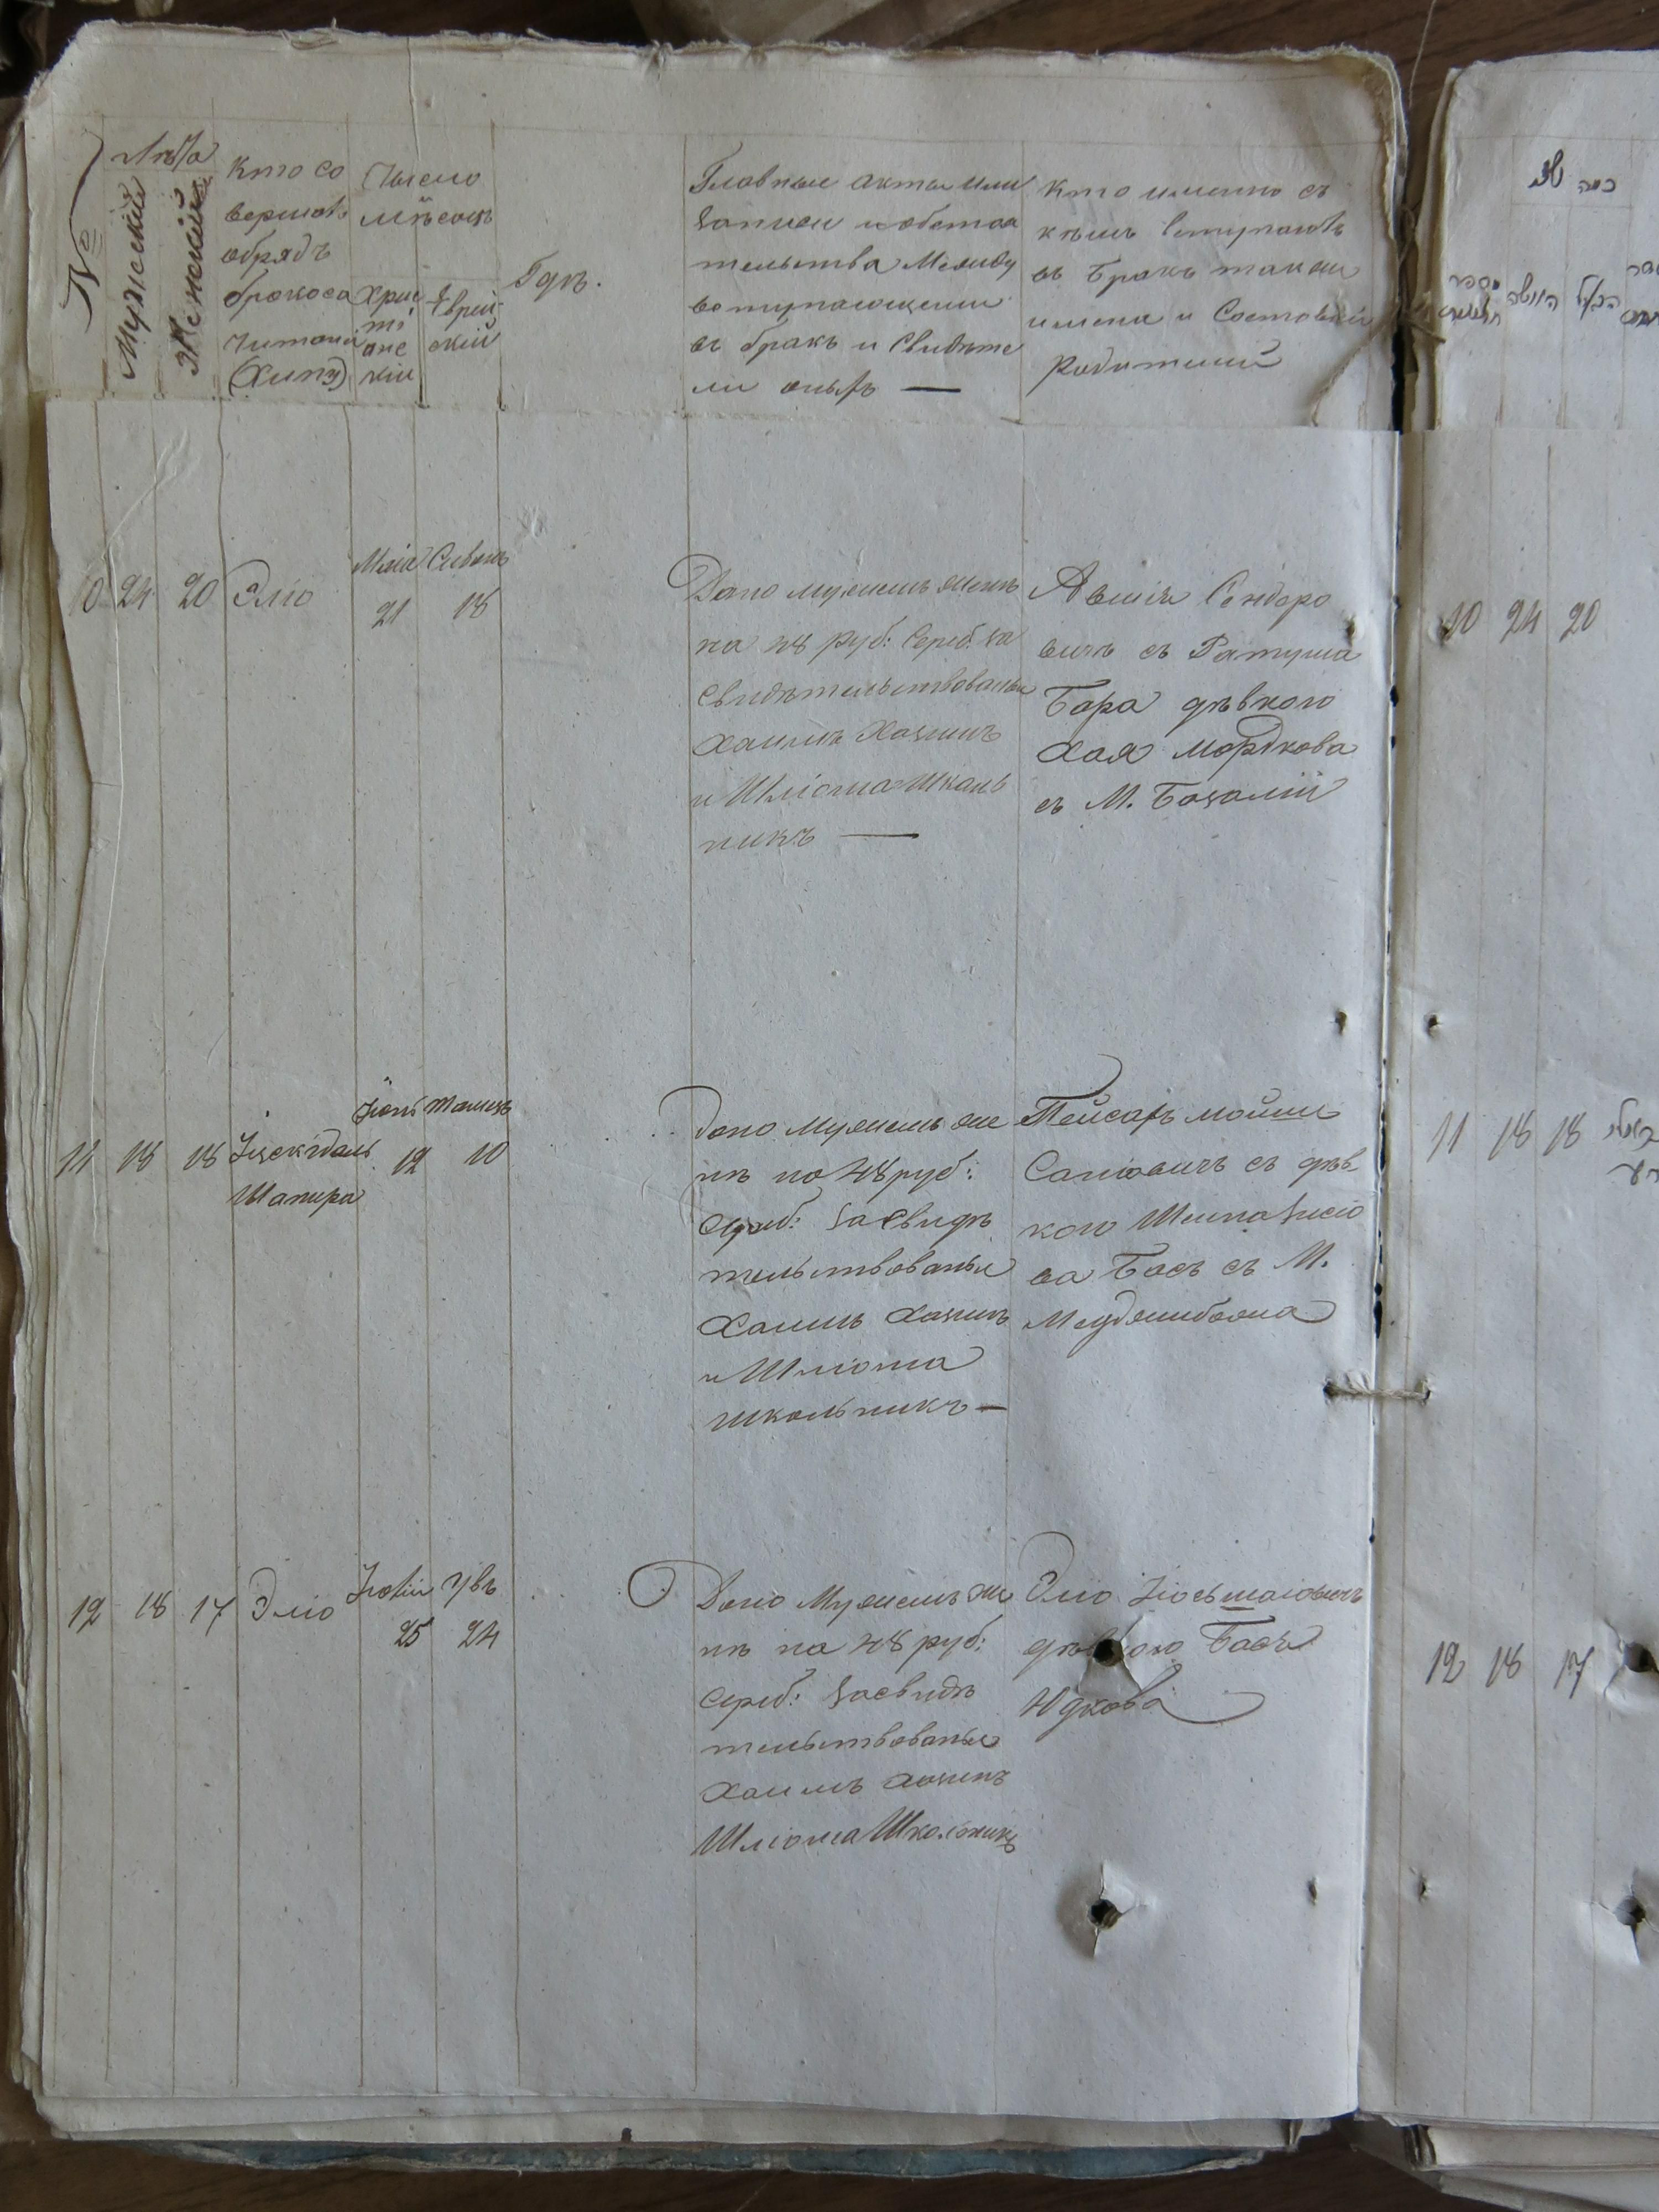 №
Лѣта
Мужескій
Женскій
Кто со
вершалъ
обрядъ
бракосо
читанія
(Хипэ)
Число
мѣсяцъ
Хрис
ті
анс
кій
Еврей
скій
Гдѣ.
Главные акты или
записи и обстоя
тельства Между
вступающими
въ бракъ и Свидѣте
ли оныхъ —
Кто именно съ
кѣмъ вступаетъ
въ Бракъ также
имена и Состояній
Родителей
10 24 20 Эліо
Маія Сивонъ
21 18
Дано мужемъ женѣ
на 48 руб: Сереб. за
свидѣтельствованы
Хаимъ Хазинъ
и Шліома Школь
никъ —
Авшія Сендеро
вичъ съ Ратуша
Бара дѣвкою
Хая Мордкова
съ М. Базаліи
11 18 18 Іцекъ
Шапира
Іюнь Тамузъ
12 10
Дано Мужемъ же
нѣ на 48 руб:
Сереб: засвидѣ
тельствованы
Хаимъ Хазинъ
и Шліома
школьникъ —
Пейсахъ Мойше
съ дѣв
кою
ва Бась съ М.
Меджибожа
12 18 17 Эліо
25 24
Дано Мужемъ же
нѣ на 48 руб:
Сереб: засвидѣ
тельствованы
Хаимъ Хазинъ
Шліома Школьникъ
Эліо
дѣвкою Бася
Юдкова
10 24 20
11 18 18
12 18 17